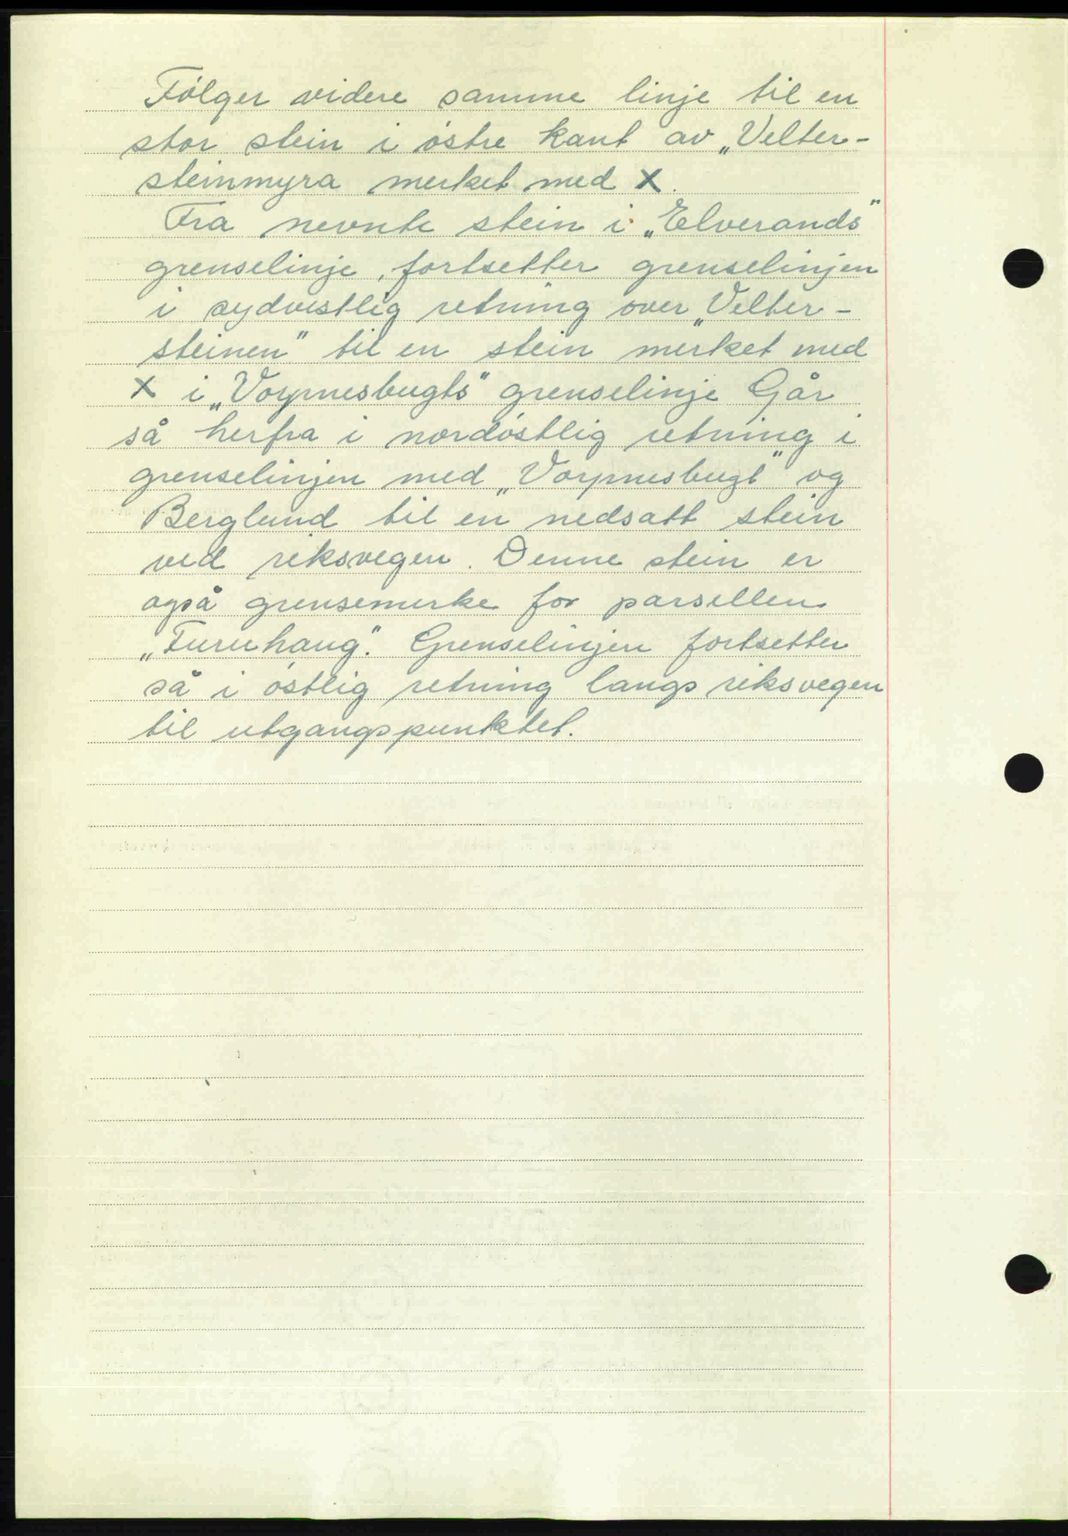 Følger videre samme linje til en
stor stein i østre kant av „Velter-
steinmyra merket med X.
Fra nevnte stein i „Elverands"
grenselinje, fortsetter grenselinjen
i sydvestlig retning over „Velter-
steinen" til en stein merket med
X i „Voymesbugts" grenselinje Går
så herfra i nordøstlig retning i
grenselinjen med „Voymesbugt" og
Berglund til en nedsatt stein
ved riksvegen. Denne stein er
også grensemerke for parsellen
„Furuhaug". Grenselinjen fortsetter
så i østlig retning langs riksvegen
til utgangspunktet.